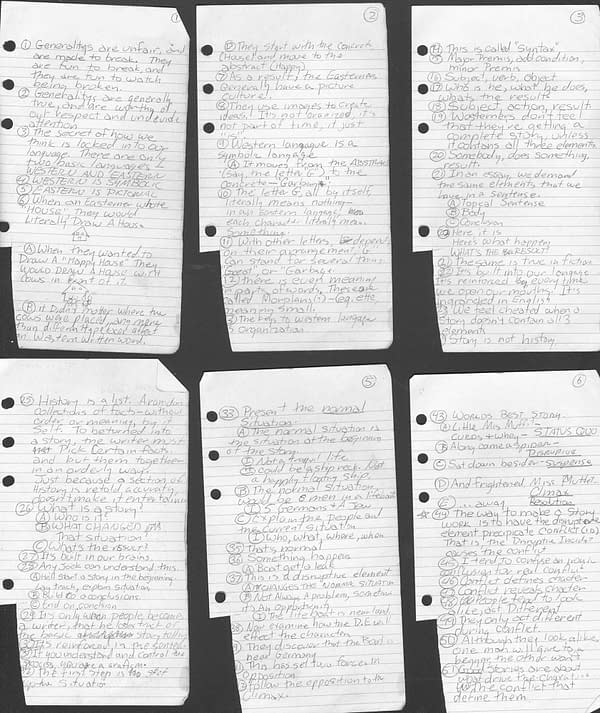 1
① Generalitys are unfair, and
are made to break. They
are fun to break, and
they are fun to watch
being broken.
② Generalitys are generally
true, and are worthy of
our respect and undeserved
attention
③ The secret of how we
think is locked into our
language. There are only
two basic languages -
WESTERN AND EASTERN
④ WESTERN IS SYMBOLIC
⑤ EASTERN IS PICTORIAL
⑥ When an Easterner wrote
HOUSE, They would
Literally Draw A House.
Ⓐ When They wanted to
Draw A "Happy House" They
would Draw A House with
Cows in front of it.
Ⓑ It Didn't matter where the
cows were placed, any more
than different type
on Western written word.
2
They start with the concrete
(House) and move to the
abstract (Happy)
⑦ As a result, the Easterners
Generally have a picture
culture.
⑧ They use images to create
ideas! It's not organized, it's
not part of time, it just
"is".
⑨ Western language is a
symbolic language
Ⓐ It moves from the ABSTRACT
(say, the letter G) to the
Concrete - "Garbage"
⑩ The letter G, all by itself,
literally means nothing -
in our Eastern language,
each character literally means
something.
⑪ With other letters, depends
on their arrangement, G
can stand for several things
Great", or "Garbage.
⑫ There is even meaning
in parts of words, These are
called Morphans(?) - (eg, ette,
meaning small.
The key to Western language
is organization
3
⑭ This is called "Syntax".
⑮ Major Premis, add condition,
minor Premis
⑯ Subject, verb, object
⑰ Who is he, what he does,
whats the results
⑱ Subject, action, result
⑲ Westerners don't feel
that they're getting a
complete story, unless
it contains all three elements.
⑳ Somebody, does something,
result.
㉑ In an essay, we demand
the same elements that we
have in a Sentence.
Ⓐ Topical Sentence
Ⓑ Body
Ⓒ Conclusion
Here it is
Here's what happen
WHAT'S THE RESULT
The same is True in fiction
It's built into our language
It's reinforced by every time
we open our mouths. It's
ingrained in English
We feel cheated when a
Story doesn't contain all 3
elements
Story is not history.
㉕ History is a list. A random
Collections of facts - without
order, or meaning, by it
self. To be turned into
a story, the writer must
Pick Certain facts.
and put them together
in an orderly way.
Just because a section of
History is retold accurately,
doesn't make it entertaining
㉖ What is a story?
Ⓐ Who is it?
Ⓑ WHAT CHANGED
That situation?
Ⓒ What's the result?
㉗ It's built in our brains.
Any Jock can understand this.
Ⓐ He'll start a story in the beginning
explain situation
Ⓑ Build to a conclusions
Ⓒ End on conclusion
It's only when people become
writers, that they lose track of
the basic story telling
This reinforced is the sentence
If you understand and control the
process, you are a craftsman.
The first step is to set
up the Situation
5
㉝ Present the normal
situation.
Ⓐ The normal situation is
the situation at the beginning
of the story.
life
Ⓘ could be a ship rock. Not
a happily floating ships
Ⓑ The normal situation,
could be 8 men in a lifeboat
Ⓘ 5 Germans & Jew
Ⓒ Explain the people and
the current situation
Ⓘ Who, what, where, when
That's normal.
㊱ Something happens
Ⓐ Boat got a leak
㊲ This is a disruptive element
Ⓐ IT CHANGES THE NORMAL SITUATION
Ⓑ Although a problem, sometimes
it's An opportunity.
Ⓘ The life boat is near land
㊳ Now, examine how the D.E will
effect the characters
They discover that the Boat is
near Germany
This has set two forces in
opposition
follow the opposition to the
climax.
6
㊸ WORLDS BEST STORY -
Ⓐ Little Mis Muffit -
CURDS & whey - STATUS QUO
Ⓑ Along came a Spider -
DISRUPTIVE
Ⓒ Sat down beside - Suspense
Ⓓ And frightened Miss Muffet
Climax
Ⓔ ... away
The way to make a Story
work is to have the disruptive
element predicate Conflict
That is, the Disruptive Incident
causes the conflict
using for real conflict
Conflict defines character
Conflict reveals character
act Different
They only act different
during conflict
㊿ Although they look alike,
one man will give to a
begger, the other won't
Good Stories are about
what drive the characters.
It's the conflict that
define them